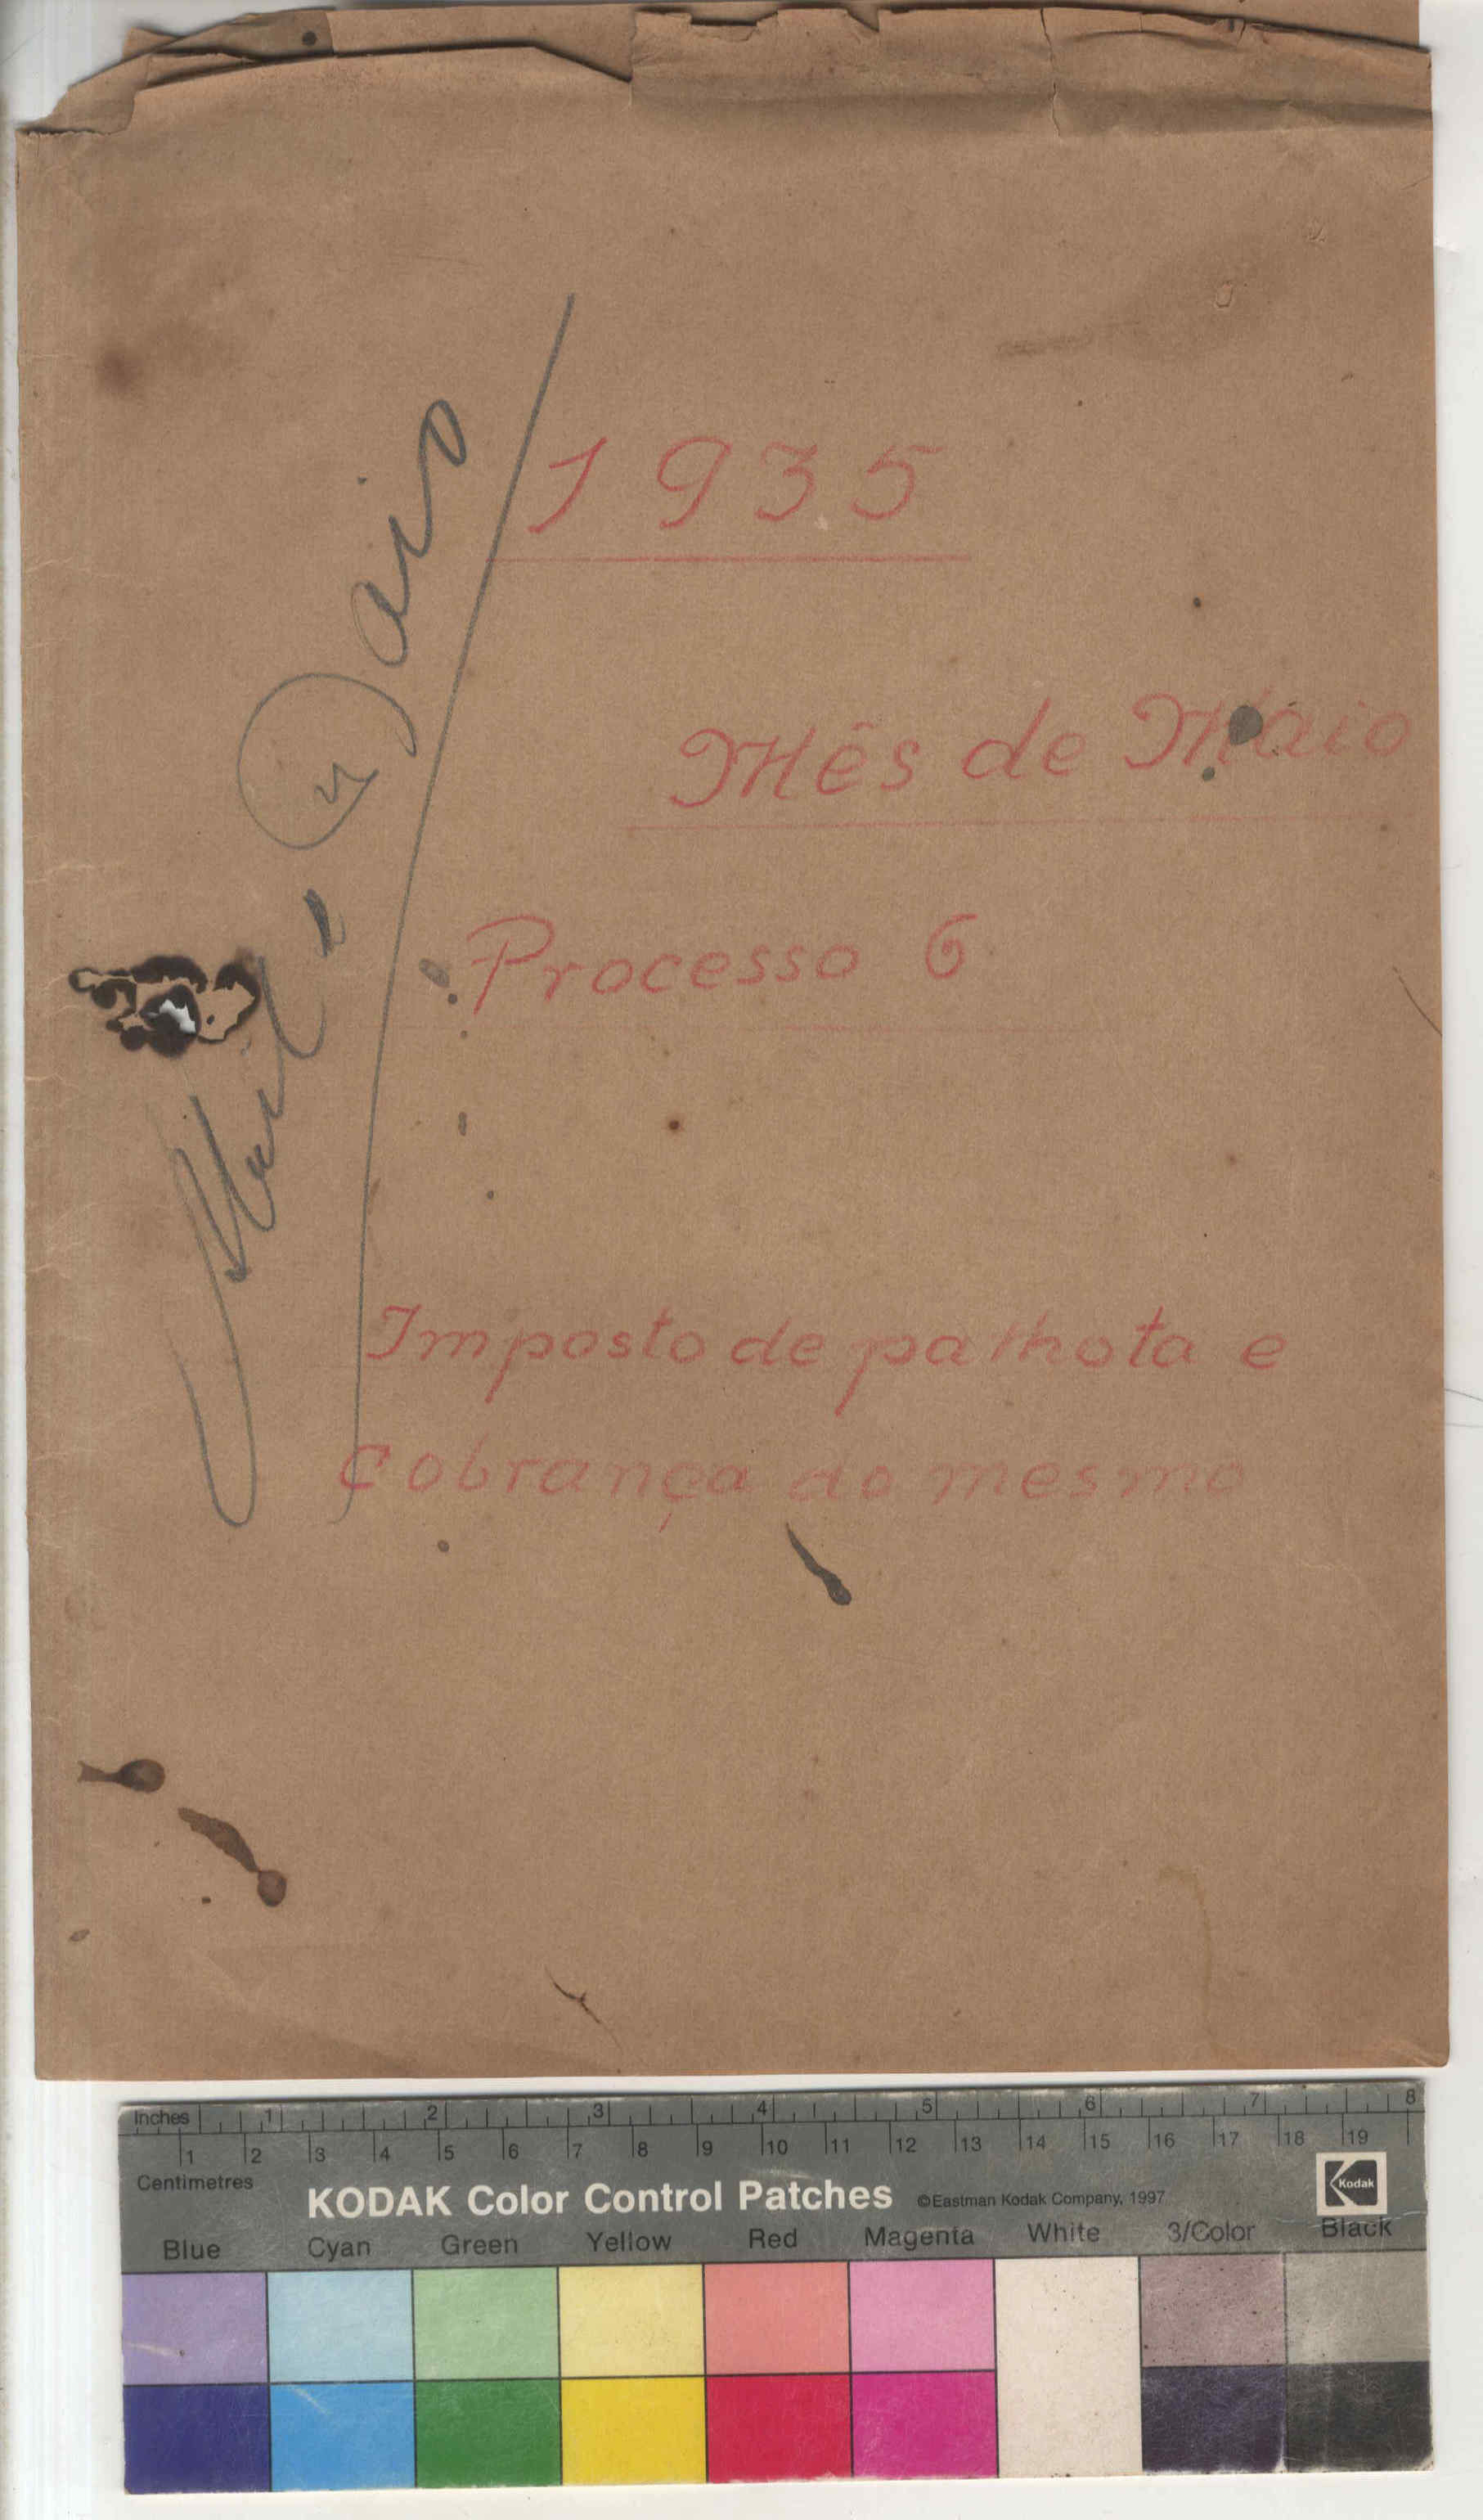 1935
Mês de Maio
Processo 6
Imposto de palhota e
Cobrança do mesmo
Abril e Maio
Inches 1 2 3 4 5 6 7 8
1 2 3 4 5 6 7 8 9 10 11 12 13 14 15 16 17 18 19
Centimetres
KODAK Color Control Patches ©Eastman Kodak Company, 1997 Kodak
Blue Cyan Green Yellow Red Magenta White 3/Color Black